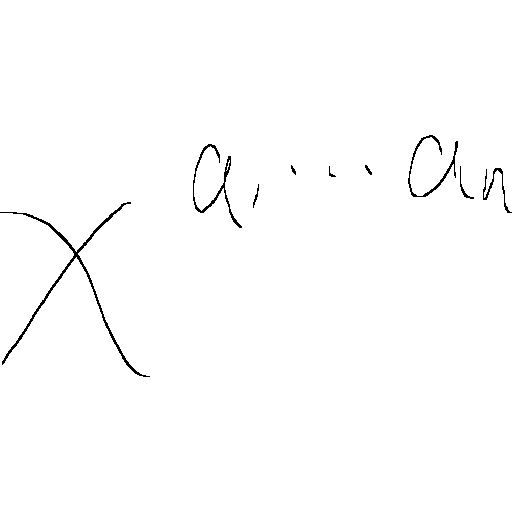 x^{a_1 \cdots a_n}